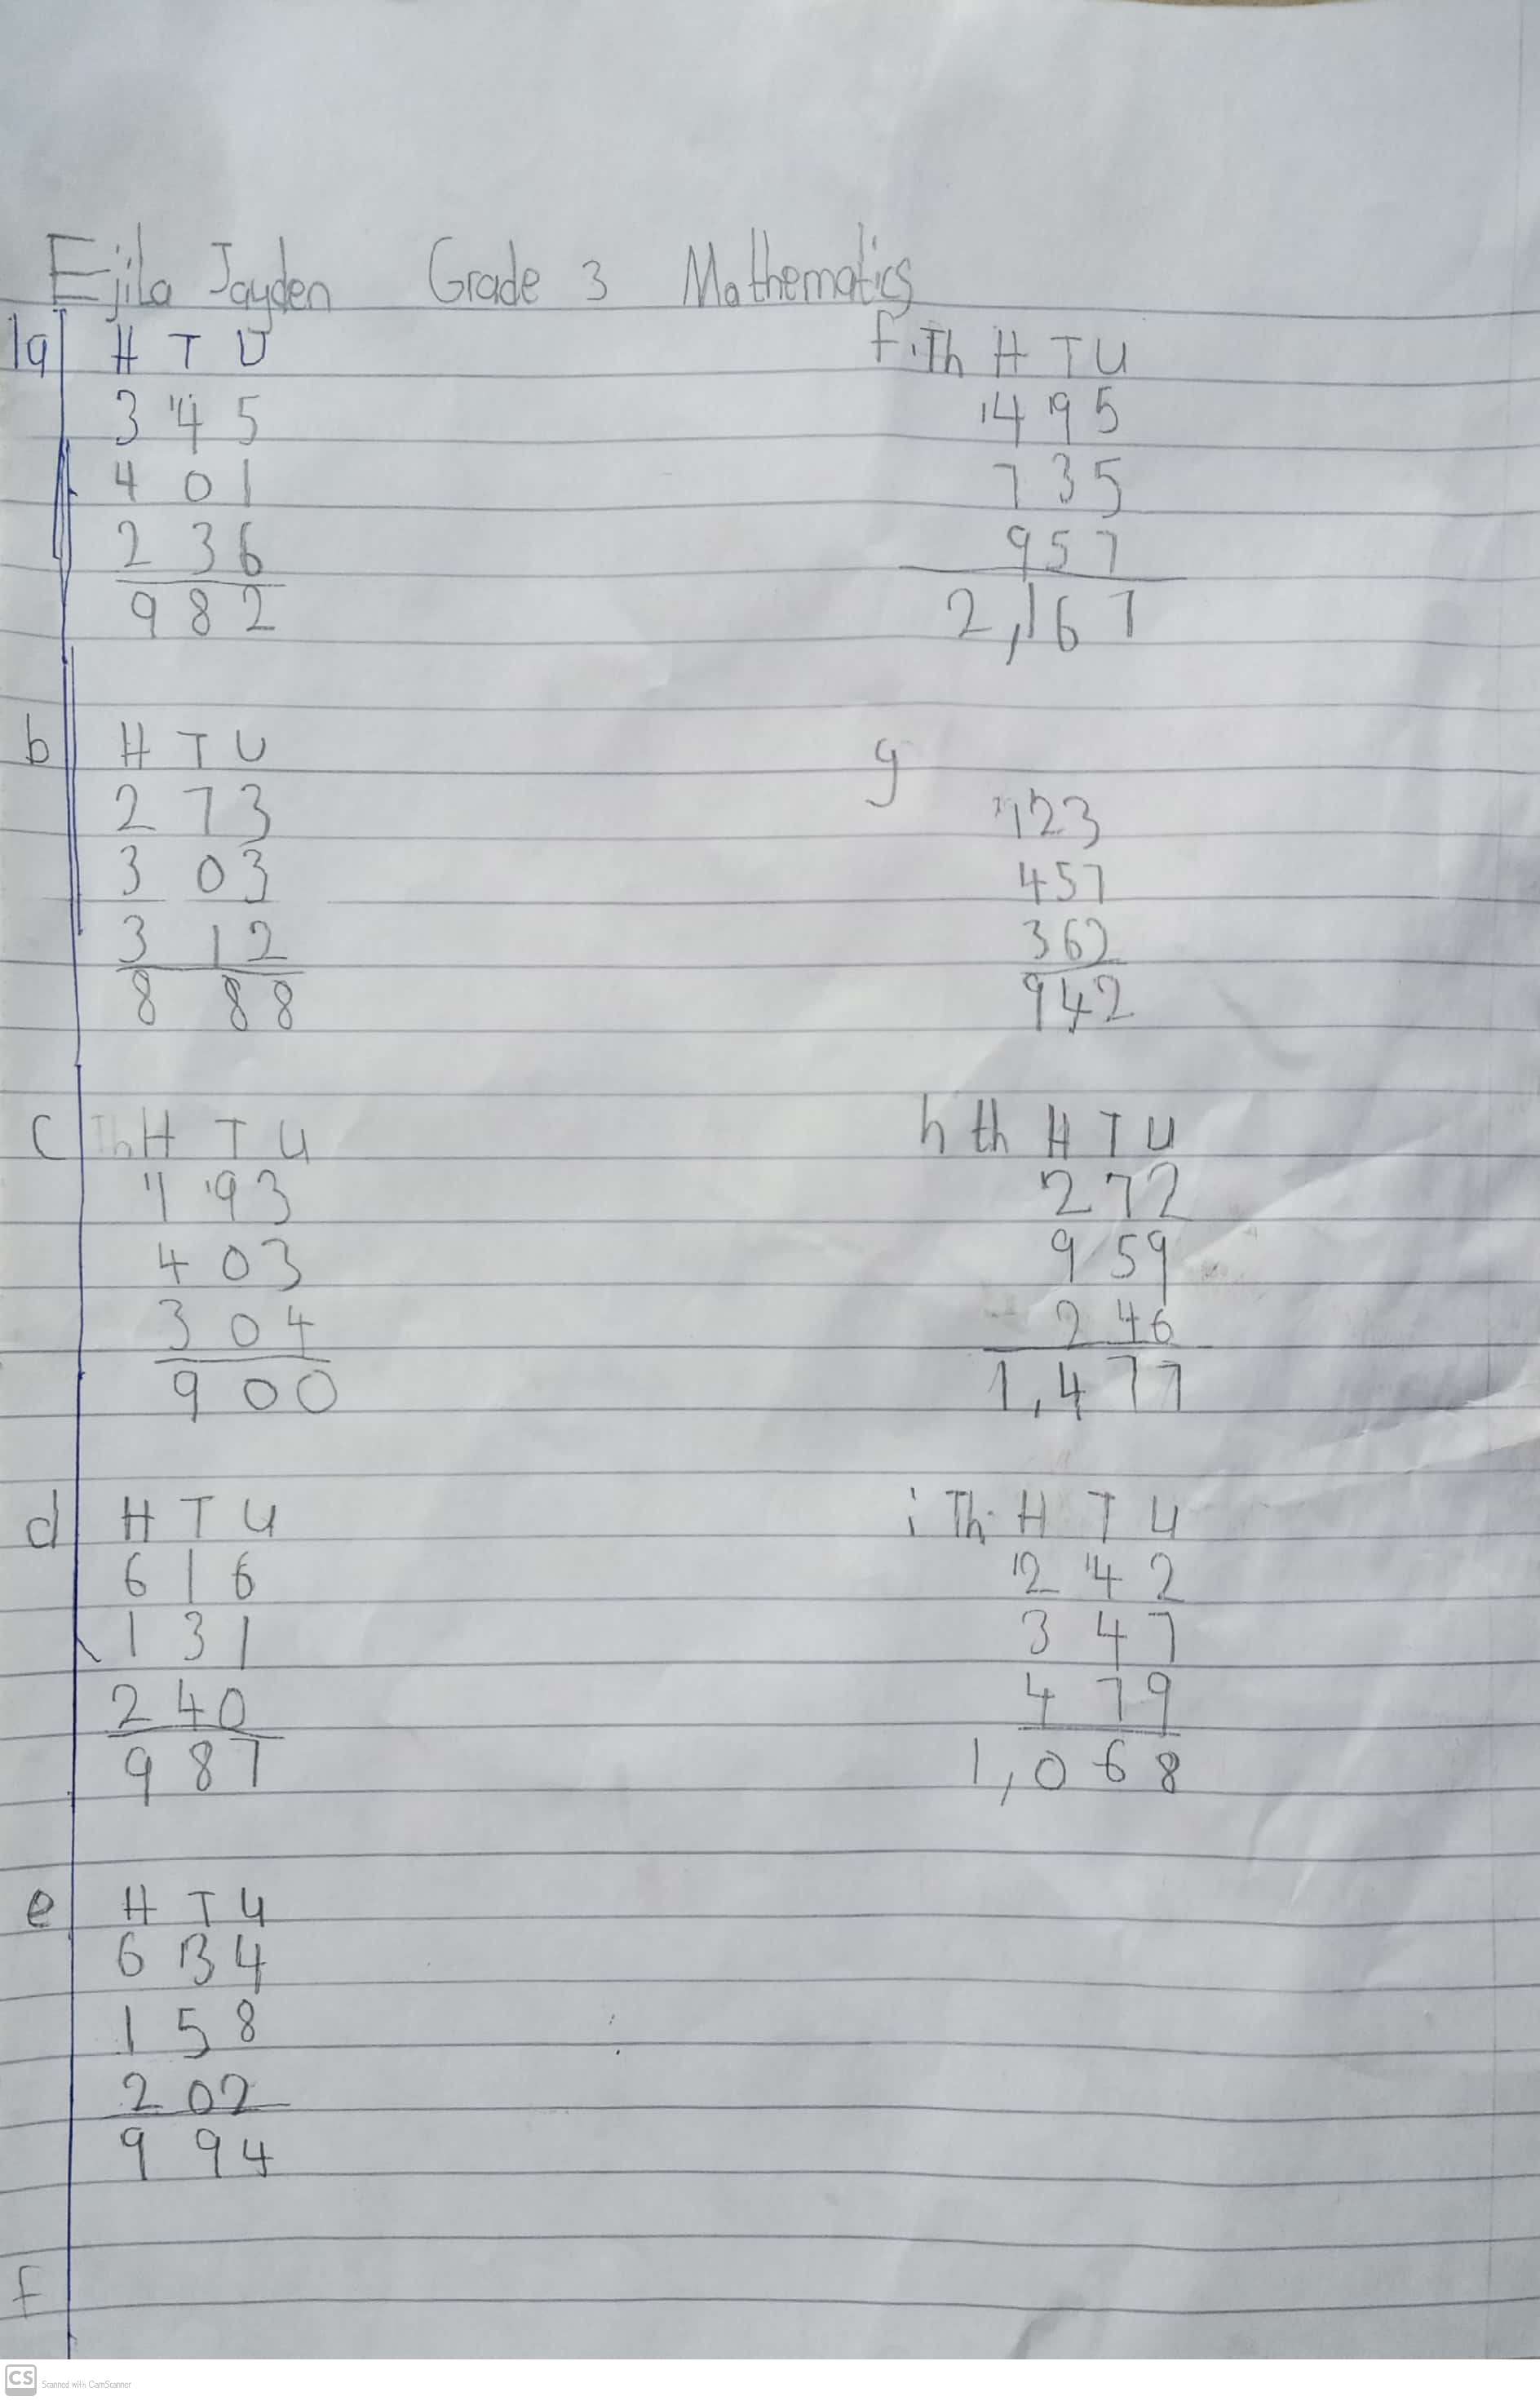 Ejila Jayden Grade 3 Mathematics
1a H T U
3 14 5
4 0 1
2 3 6
9 8 2
b H T U
2 7 3
3 0 3
3 1 2
8 8 8
c Th H T U
11 19 3
4 0 3
3 0 4
9 0 0
d H T U
6 1 6
1 3 1
2 4 0
9 8 7
e H T U
6 13 4
1 5 8
2 0 2
9 9 4
f
f. Th H T U
14 19 5
7 3 5
9 5 7
2,16 7
g
1123
457
362
942
h th H T U
12 7 2
9 59
2 46
1,4 7 7
i Th H T U
12 14 2
3 4 7
4 7 9
1,0 6 8
CS Scanned with CamScanner